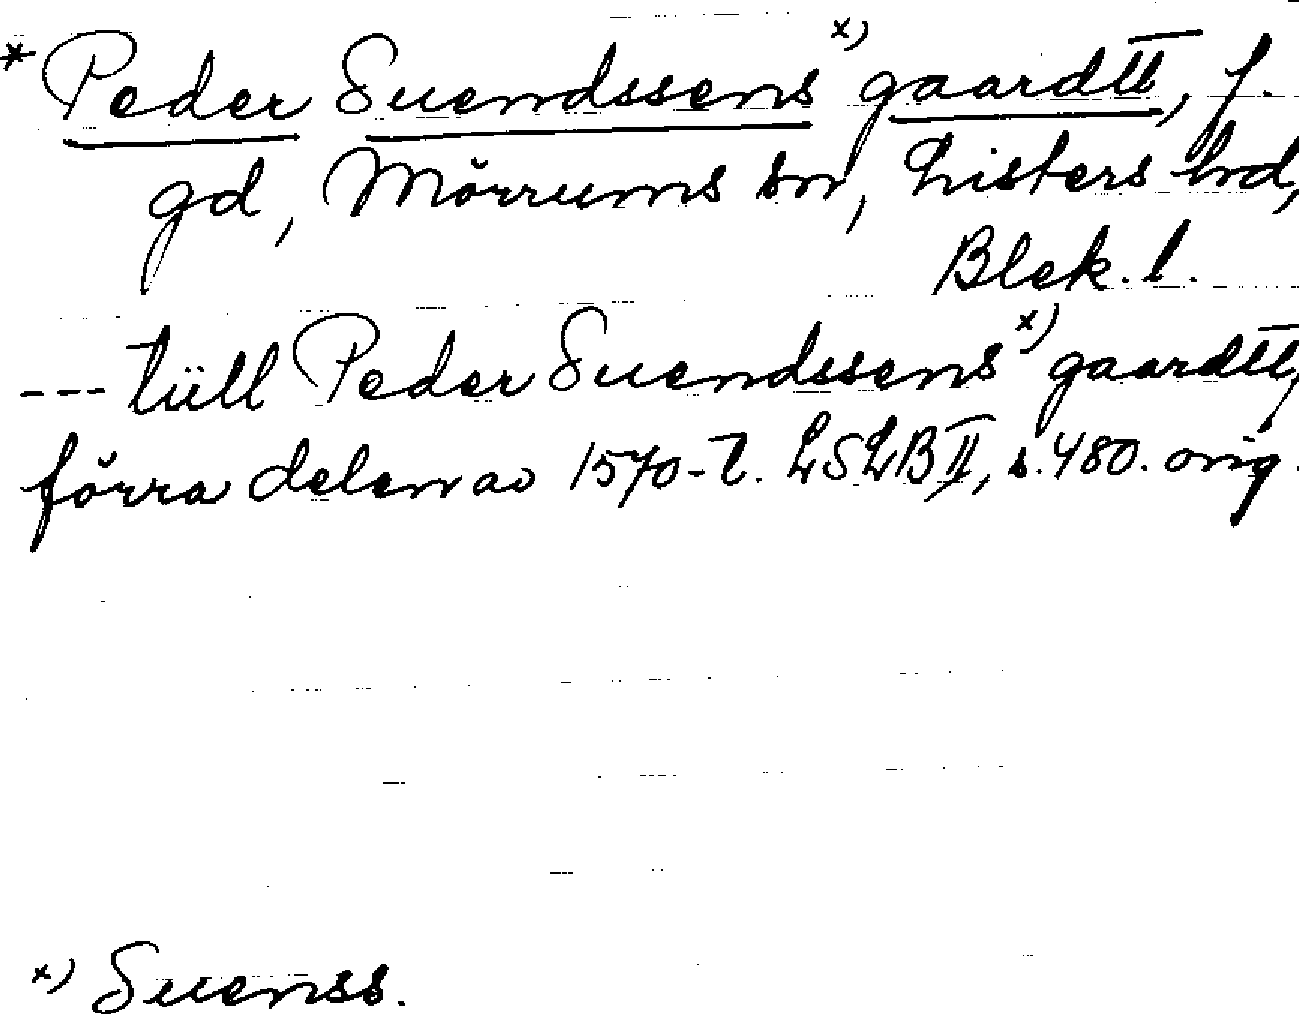 * Peder Suendssens x) gaardtt, f.
gd, Mörrums sn, Listers hd,
Blek. l.
--- tüll Peder Suendssens x) gaardtt,
förra delen av 1570-t. LSLB II, s. 480. orig.
x) Suenss.